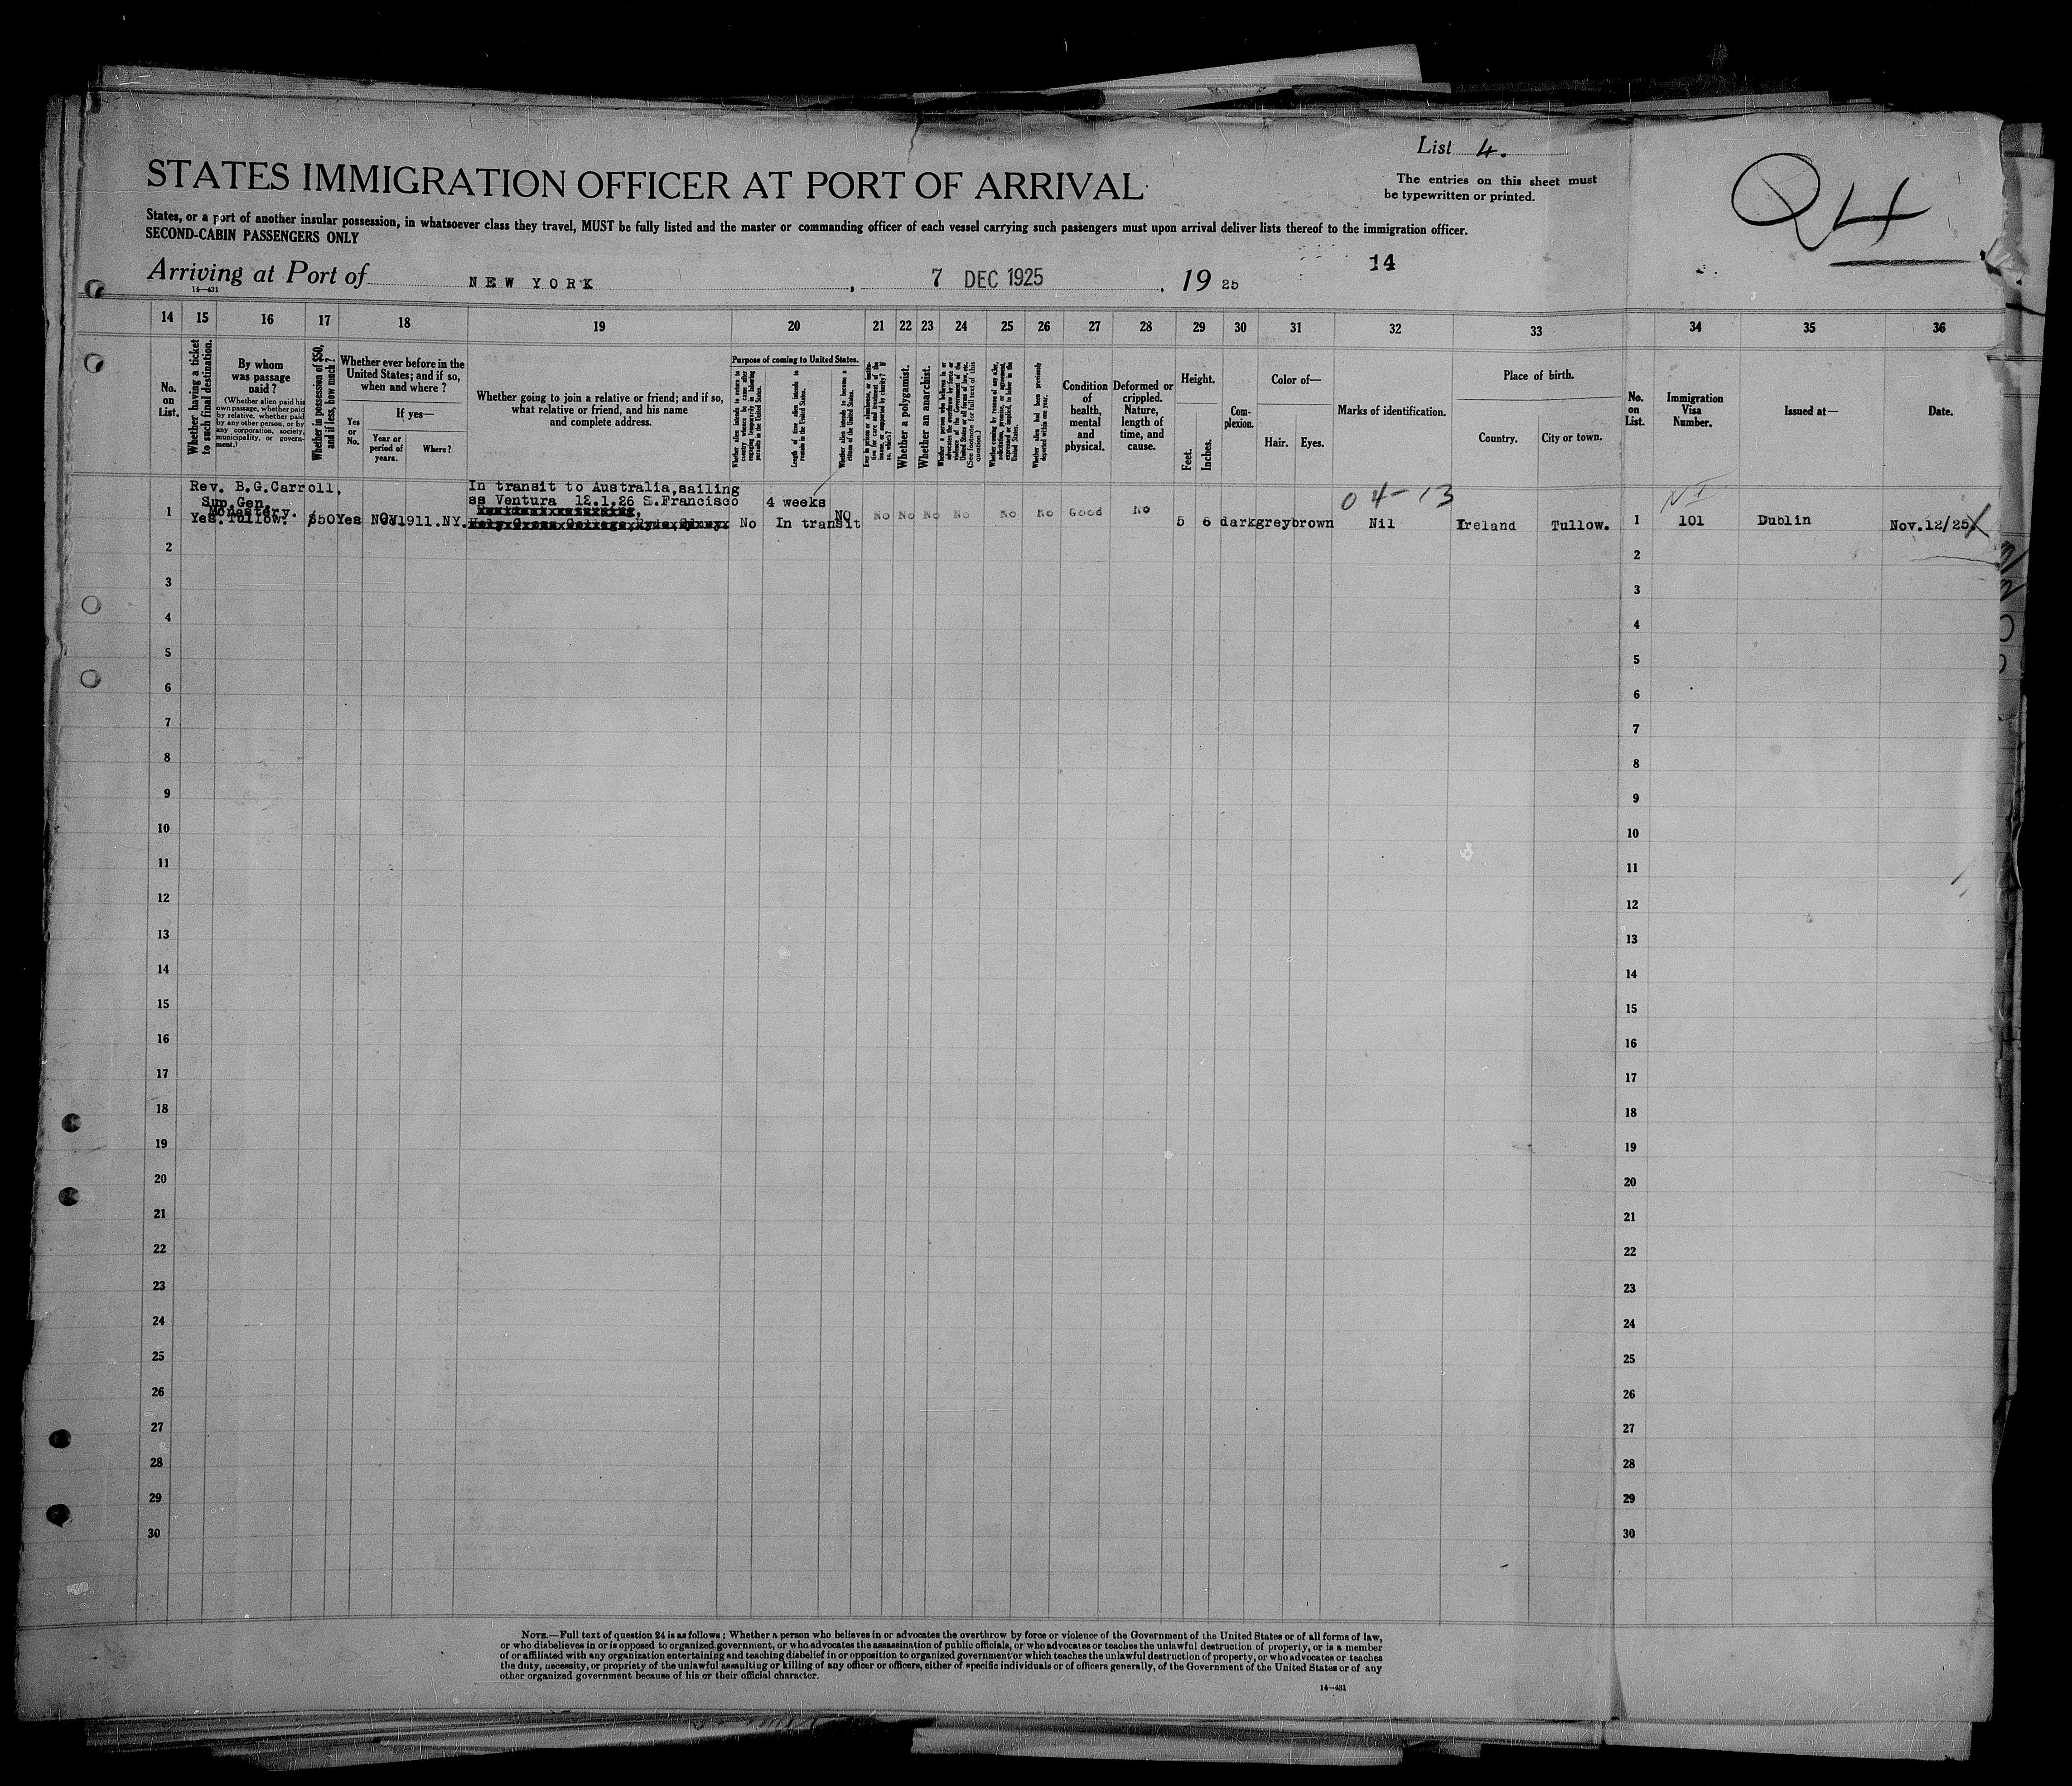 List 4.
STATES IMMIGRATION OFFICER AT PORT OF ARRIVAL
The entries on this sheet must
be typewritten or printed.
States, or a port of another insular possession, in whatsoever class they travel, MUST be fully listed and the master or commanding officer of each vessel carrying such passengers must upon arrival deliver lists thereof to the immigration officer.
SECOND-CABIN PASSENGERS ONLY
Arriving at Port of NEW YORK, 7 DEC 1925, 19 25
14
14—431
14 15 16 17 18 19 20 21 22 23 24 25 26 27 28 29 30 31 32 33 34 35 36
No. on List.
Whether having a ticket to such final destination.
By whom was passage paid?
(Whether alien paid his own passage, whether paid by relative, whether paid by any other person, or by any corporation, society, municipality, or government.)
Whether in possession of $50, and if less, how much?
Whether ever before in the United States; and if so, when and where?
Yes or No.
If yes—
Year or period of years.
Where?
Whether going to join a relative or friend; and if so, what relative or friend, and his name and complete address.
Purpose of coming to United States.
Whether alien intends to return to country whence he came after engaging temporarily in laboring pursuits in the United States.
Length of time alien intends to remain in the United States.
Whether alien intends to become a citizen of the United States.
Ever in prison or almshouse, or institution for care and treatment of the insane, or supported by charity? If so, which?
Whether a polygamist.
Whether an anarchist.
Whether a person who believes in or advocates the overthrow by force or violence of the Government of the United States or all forms of law, etc. (See footnote for full text of this question.)
Whether coming by reason of any offer, solicitation, promise, or agreement, expressed or implied, to labor in the United States.
Whether alien had been previously deported within one year.
Condition of health, mental and physical.
Deformed or crippled. Nature, length of time, and cause.
Height.
Feet.
Inches.
Complexion.
Color of—
Hair.
Eyes.
Marks of identification.
Place of birth.
Country.
City or town.
No. on List.
Immigration Visa Number.
Issued at—
Date.
Rev. B.G.Carroll,
Sup.Gen.
Monastery.
1 Yes. Tullow. $50 Yes 1911. NY.
In transit to Australia,sailing
ss Ventura 12.1.26 S.Francisco
No
4 weeks
In transit
NO
No No No No No No Good No
5 6 dark grey brown
04-13
Nil Ireland Tullow.
1 101 Dublin Nov.12/25
2 2
3 3
4 4
5 5
6 6
7 7
8 8
9 9
10 10
11 11
12 12
13 13
14 14
15 15
16 16
17 17
18 18
19 19
20 20
21 21
22 22
23 23
24 24
25 25
26 26
27 27
28 28
29 29
30 30
NOTE.—Full text of question 24 is as follows: Whether a person who believes in or advocates the overthrow by force or violence of the Government of the United States or of all forms of law,
or who disbelieves in or is opposed to organized government, or who advocates the assassination of public officials, or who advocates or teaches the unlawful destruction of property, or is a member
of or affiliated with any organization entertaining and teaching disbelief in or opposition to organized government or which teaches the unlawful destruction of property, or who advocates or teaches
the duty, necessity, or propriety of the unlawful assaulting or killing of any officer or officers, either of specific individuals or of officers generally, of the Government of the United States or of any
other organized government because of his or their official character.
14—431